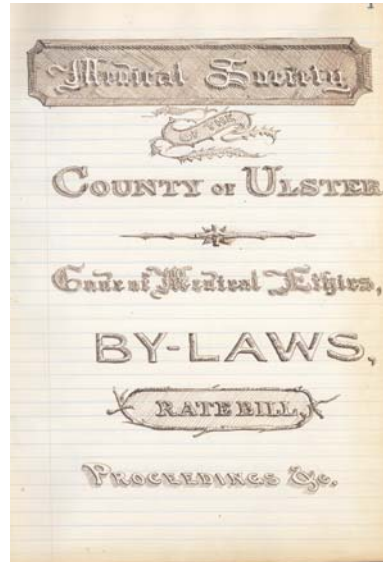 1
Medical Society
OF THE
COUNTY OF ULSTER
Code of Medical Ethics,
BY-LAWS,
RATE BILL,
PROCEEDINGS &c.